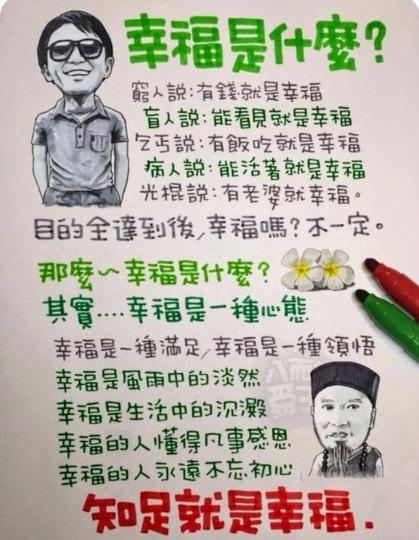 幸福是什麼？
窮人說：有錢就是幸福
盲人說：能看見就是幸福
乞丐說：有飯吃就是幸福
病人說：能活著就是幸福
光棍說：有老婆就幸福。
目的全達到後，幸福嗎？不一定。
那麼～幸福是什麼？
其實....幸福是一種心態
幸福是一種滿足，幸福是一種領悟
幸福是風雨中的淡然
幸福是生活中的沉澱
幸福的人懂得凡事感恩
幸福的人永遠不忘初心
知足就是幸福.